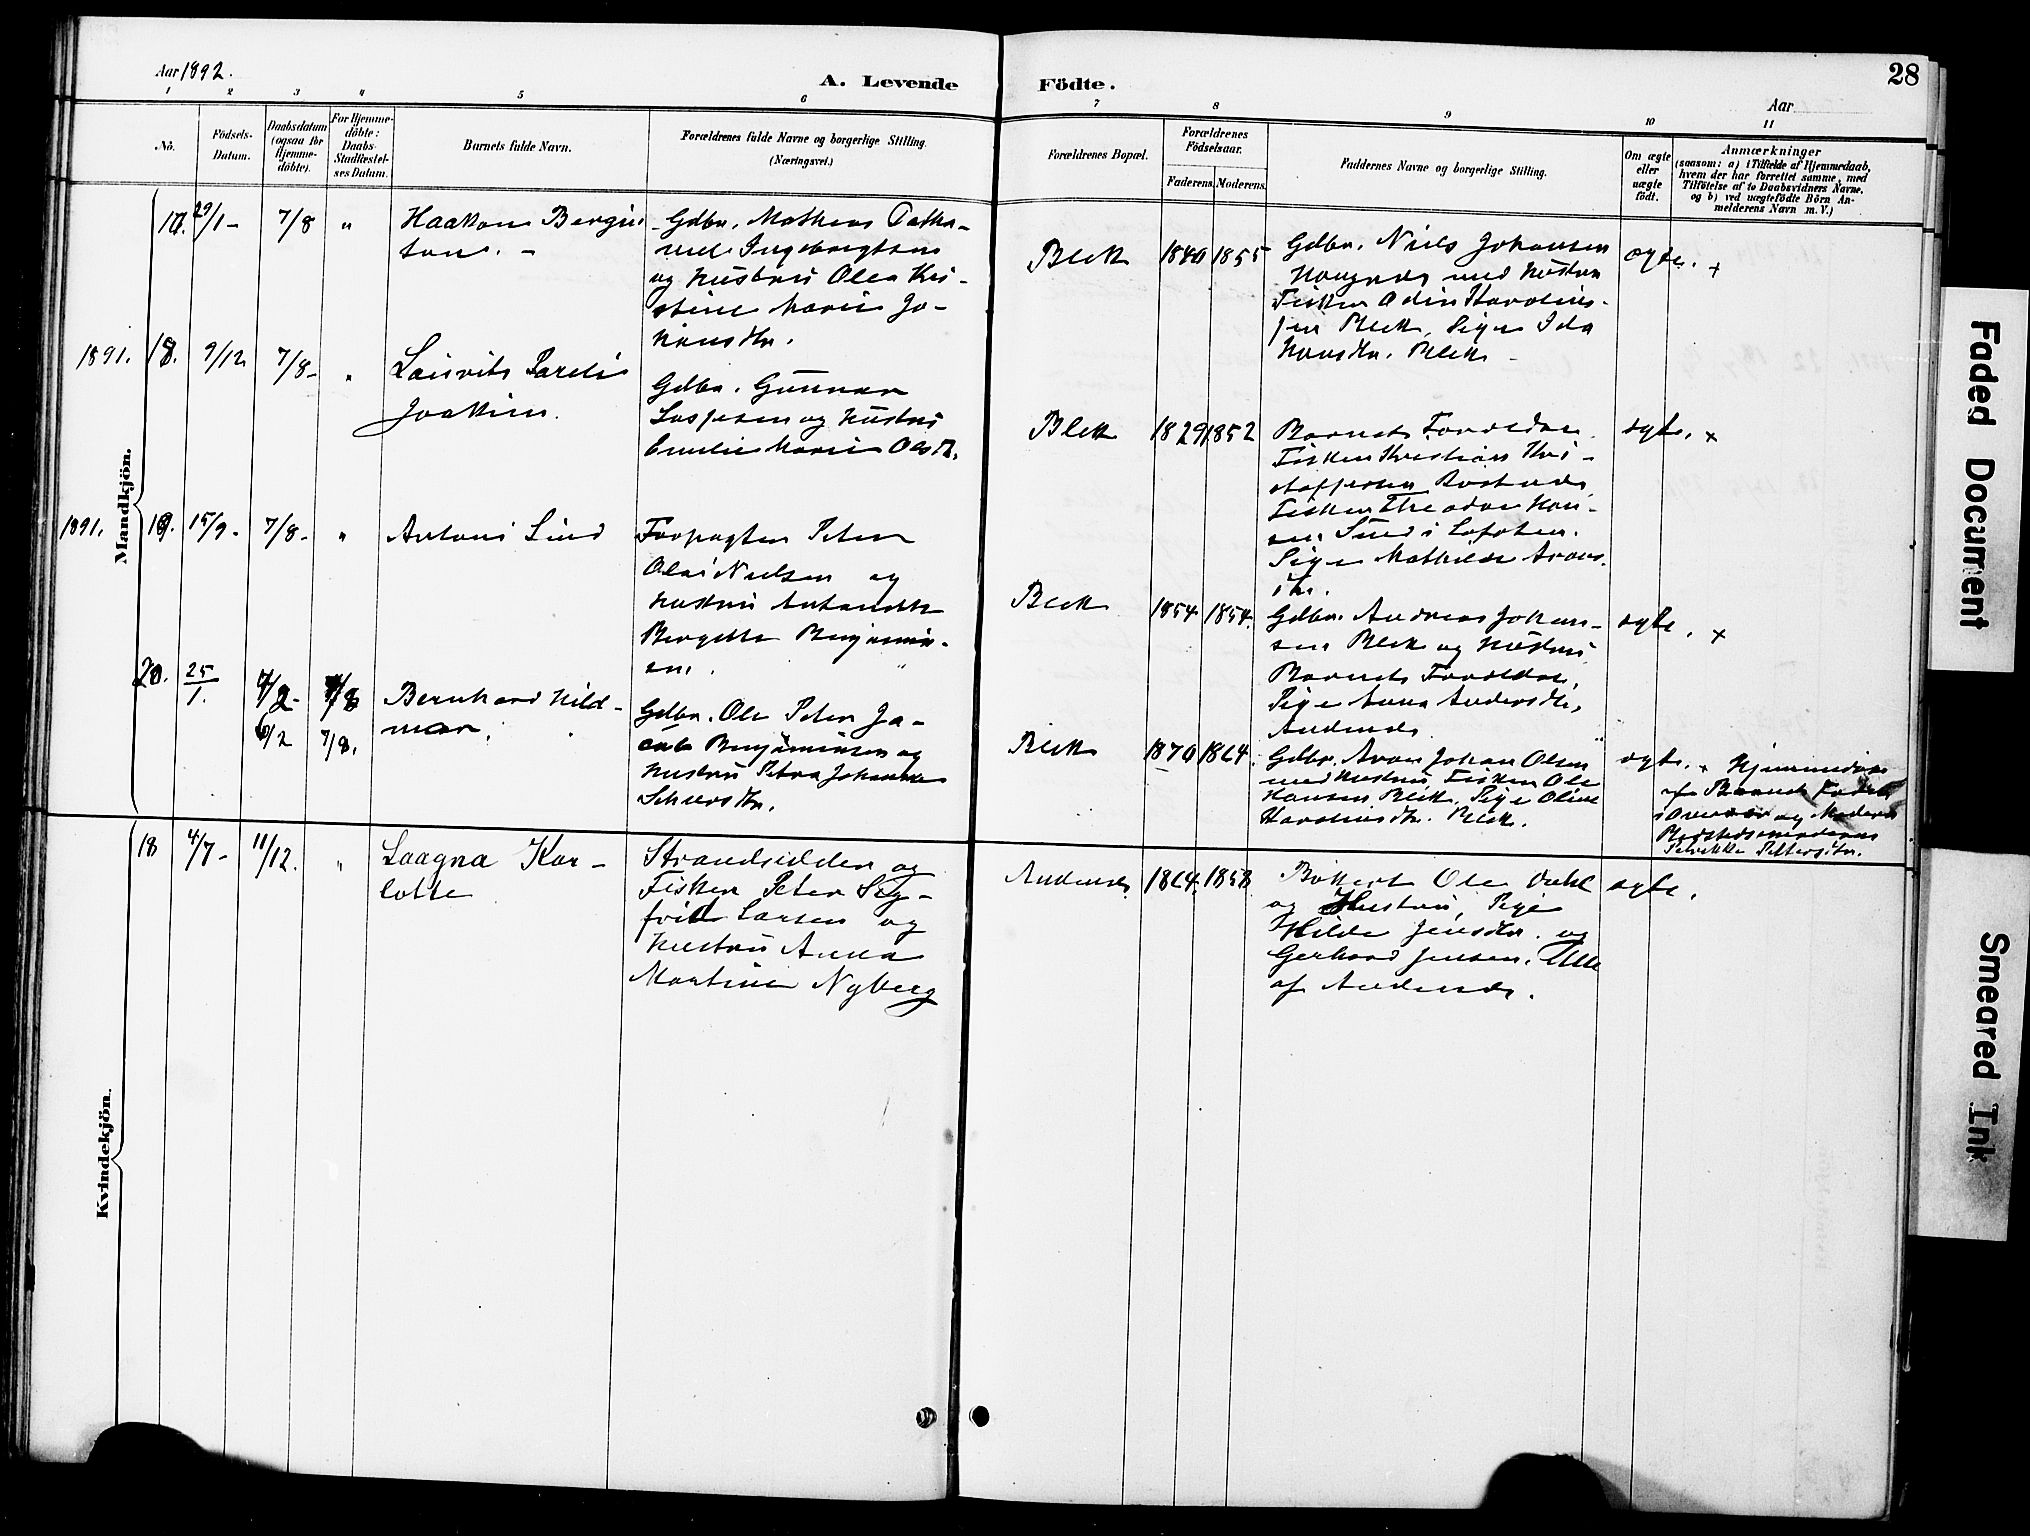 Aar 1892.
A. Levende Födte.
28
Aar
1 2 3 4 5 6 7 8 9 10 11
No.
Födsels-
Datum.
Daabsdatum
(ogsaa for
Hjemme-
döbte).
For Hjemme-
döbte:
Daabs-
Stadfæstel-
ses Datum.
Barnets fulde Navn.
Forældrenes fulde Navne og borgerlige Stilling.
(Næringsvei.)
Forældrenes Bopæl.
Forældrenes
Födselsaar.
Faderens. Moderens.
Faddernes Navne og borgerlige Stilling.
Om ægte
eller
uægte
födt.
Anmærkninger
(saasom: a) i Tilfælde af Hjemmedaab,
hvem der har forrettet samme, med
Tilföielse af to Daabsvidners Navne.
og b) ved uægtefödte Börn An-
melderens Navn m. V.)
Mandkjön.
17. 29/1 - 7/8 "
Haakon Bergiu
sen. -
Gdbr. Mathias
Ingebrigtsen
og Hustru Olea Kri-
stine Marie Jo-
hansdtr.
Blek 1840 1855
Gdbr. Niels Johansen
Haugnes med Hustru
Fisker Odin Karolius-
sen Blek, Pige Ida
Hansdtr. Blek -
ægte. +
1891. 18. 9/12 7/8 - "
Lauritz Pareli
Joakim.
Gdbr. Gunnar
og Hustru
Emilie Marie Olsdtr.
Blek 1829 1852
Barnets Forældre.
Fisker Kristian Kri-
stoffersen
Fisker Theodor Han-
sen Sund i Lofoten.
Pige Mathilde Arons-
dtr.
ægte. +
1891. 19. 15/9 - 7/8 - "
Antoni Lind
Forpagter Peter
Olai Nielsen og
Hustru
Bergitte Benjamin-
sen.
Blek 1854 1854.
Gdbr. Andreas Johan-
sen Blek og Hustru,
Barnets Forældre,
Pige Anna Andersdtr,
Andenes
ægte. +
20. 25/1. 7/2 - 7/8
6/2 7/8.
Bernhard Hild-
mar.
Gdbr. Ole Peter Ja-
cob Benjaminsen og
Hustru Petra Johanna
Blek 1870 1864.
Gdbr. Aron Johan Olsen
med Hustru Fisker Ole
Hansen Blek, Pige Oline
Karoliusdtr. Blek.
ægte. + Hjemmedöbt
af Barnets Fader
og Moderen
Pettersdtr.
Kvindekjön.
18 4/7 - 11/12. "
Laagna Kar-
lotte
Strandsidder og
Fisker Peter Sig-
frid Larsen og
Hustru Anna
Martine Nyberg
Andenes 1864. 1858
Ole Dahl
og Hustru, Pige
Hilda Jensdtr. og
Gerhard Jensen. Alle
af Andenes.
ægte.
Faded Document
Smeared Ink